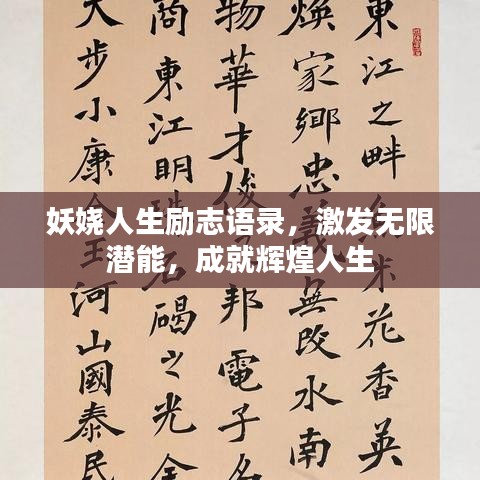 東江之畔米花香英
煥家鄉忠義無改水南
物華才俊邦電子名
商東江明珠石碣之光全
大步小康河山國泰民
妖娆人生励志语录，激发无限
潜能，成就辉煌人生